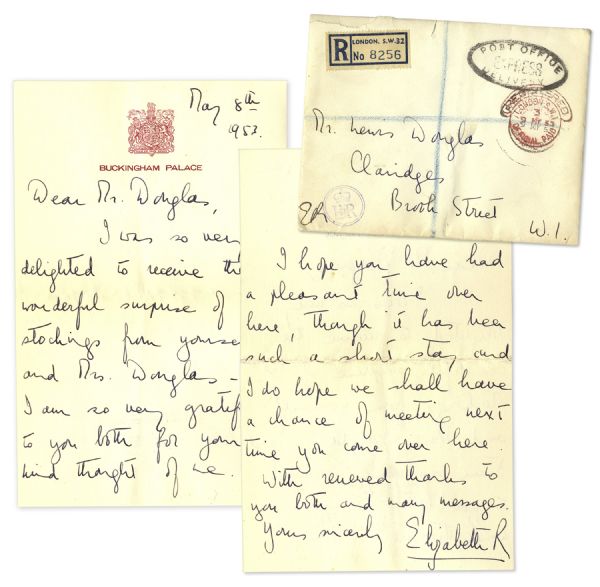 May 8th
1953.
BUCKINGHAM PALACE
Dear Mr. Douglas,
I was so very
delighted to receive the
wonderful surprise of
stockings from yourse
and Mrs. Douglas –
I am so very gratef
to you both for your
kind thought of me.
I hope you have had
a pleasant time over
here, though it has been
such a short stay, and
I do hope we shall have
a chance of meeting next
time you come over here.
With renewed thanks to
you both and many messages.
Yours sincerely
Elizabeth R
R LONDON, S.W.32
No 8256
POST OFFICE
EXPRESS
DELIVERY
REGISTERED
LONDON.S.W.1
Mr. Lewis Douglas
Claridges
Brook Street
W.1.
ER.
EIIR